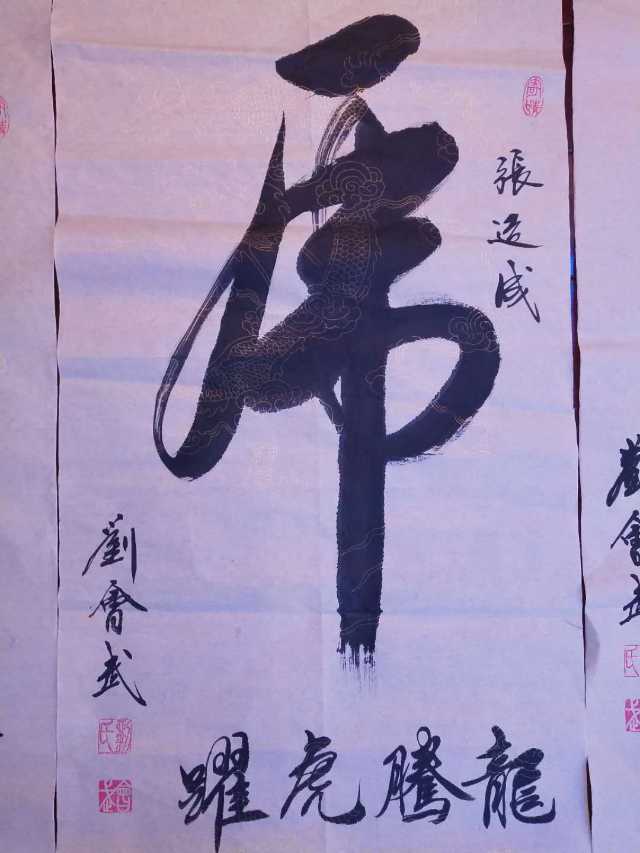 虎
張造成
劉會武
龍騰虎躍
劉會武